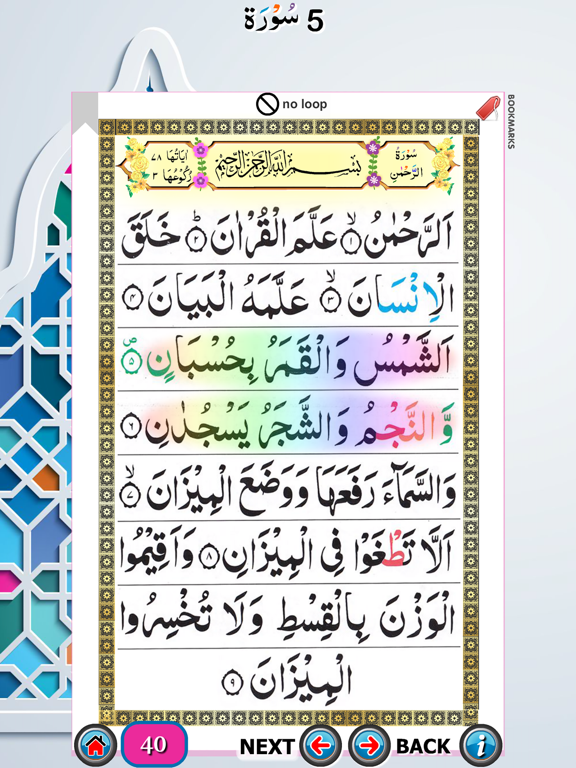 سُوْرَة 5
no loop
BOOKMARKS
سُوْرَةُ الرَّحْمٰنِ
بِسْمِ اللّٰهِ الرَّحْمٰنِ الرَّحِيْمِ
اٰيَاتُهَا ٧٨
رُكُوْعُهَا ٣
اَلرَّحْمٰنُ ۙ﴿١﴾ عَلَّمَ الْقُرْاٰنَ ؕ﴿٢﴾ خَلَقَ
الْاِنْسَانَ ۙ﴿٣﴾ عَلَّمَهُ الْبَيَانَ ﴿٤﴾
اَلشَّمْسُ وَالْقَمَرُ بِحُسْبَانٍ ۪﴿٥﴾
وَّالنَّجْمُ وَالشَّجَرُ يَسْجُدٰنِ ﴿٦﴾
وَالسَّمَآءَ رَفَعَهَا وَوَضَعَ الْمِيْزَانَ ۙ﴿٧﴾
اَلَّا تَطْغَوْا فِى الْمِيْزَانِ ﴿٨﴾ وَاَقِيْمُوا
الْوَزْنَ بِالْقِسْطِ وَلَا تُخْسِرُوا
الْمِيْزَانَ ﴿٩﴾
40
NEXT
BACK
i